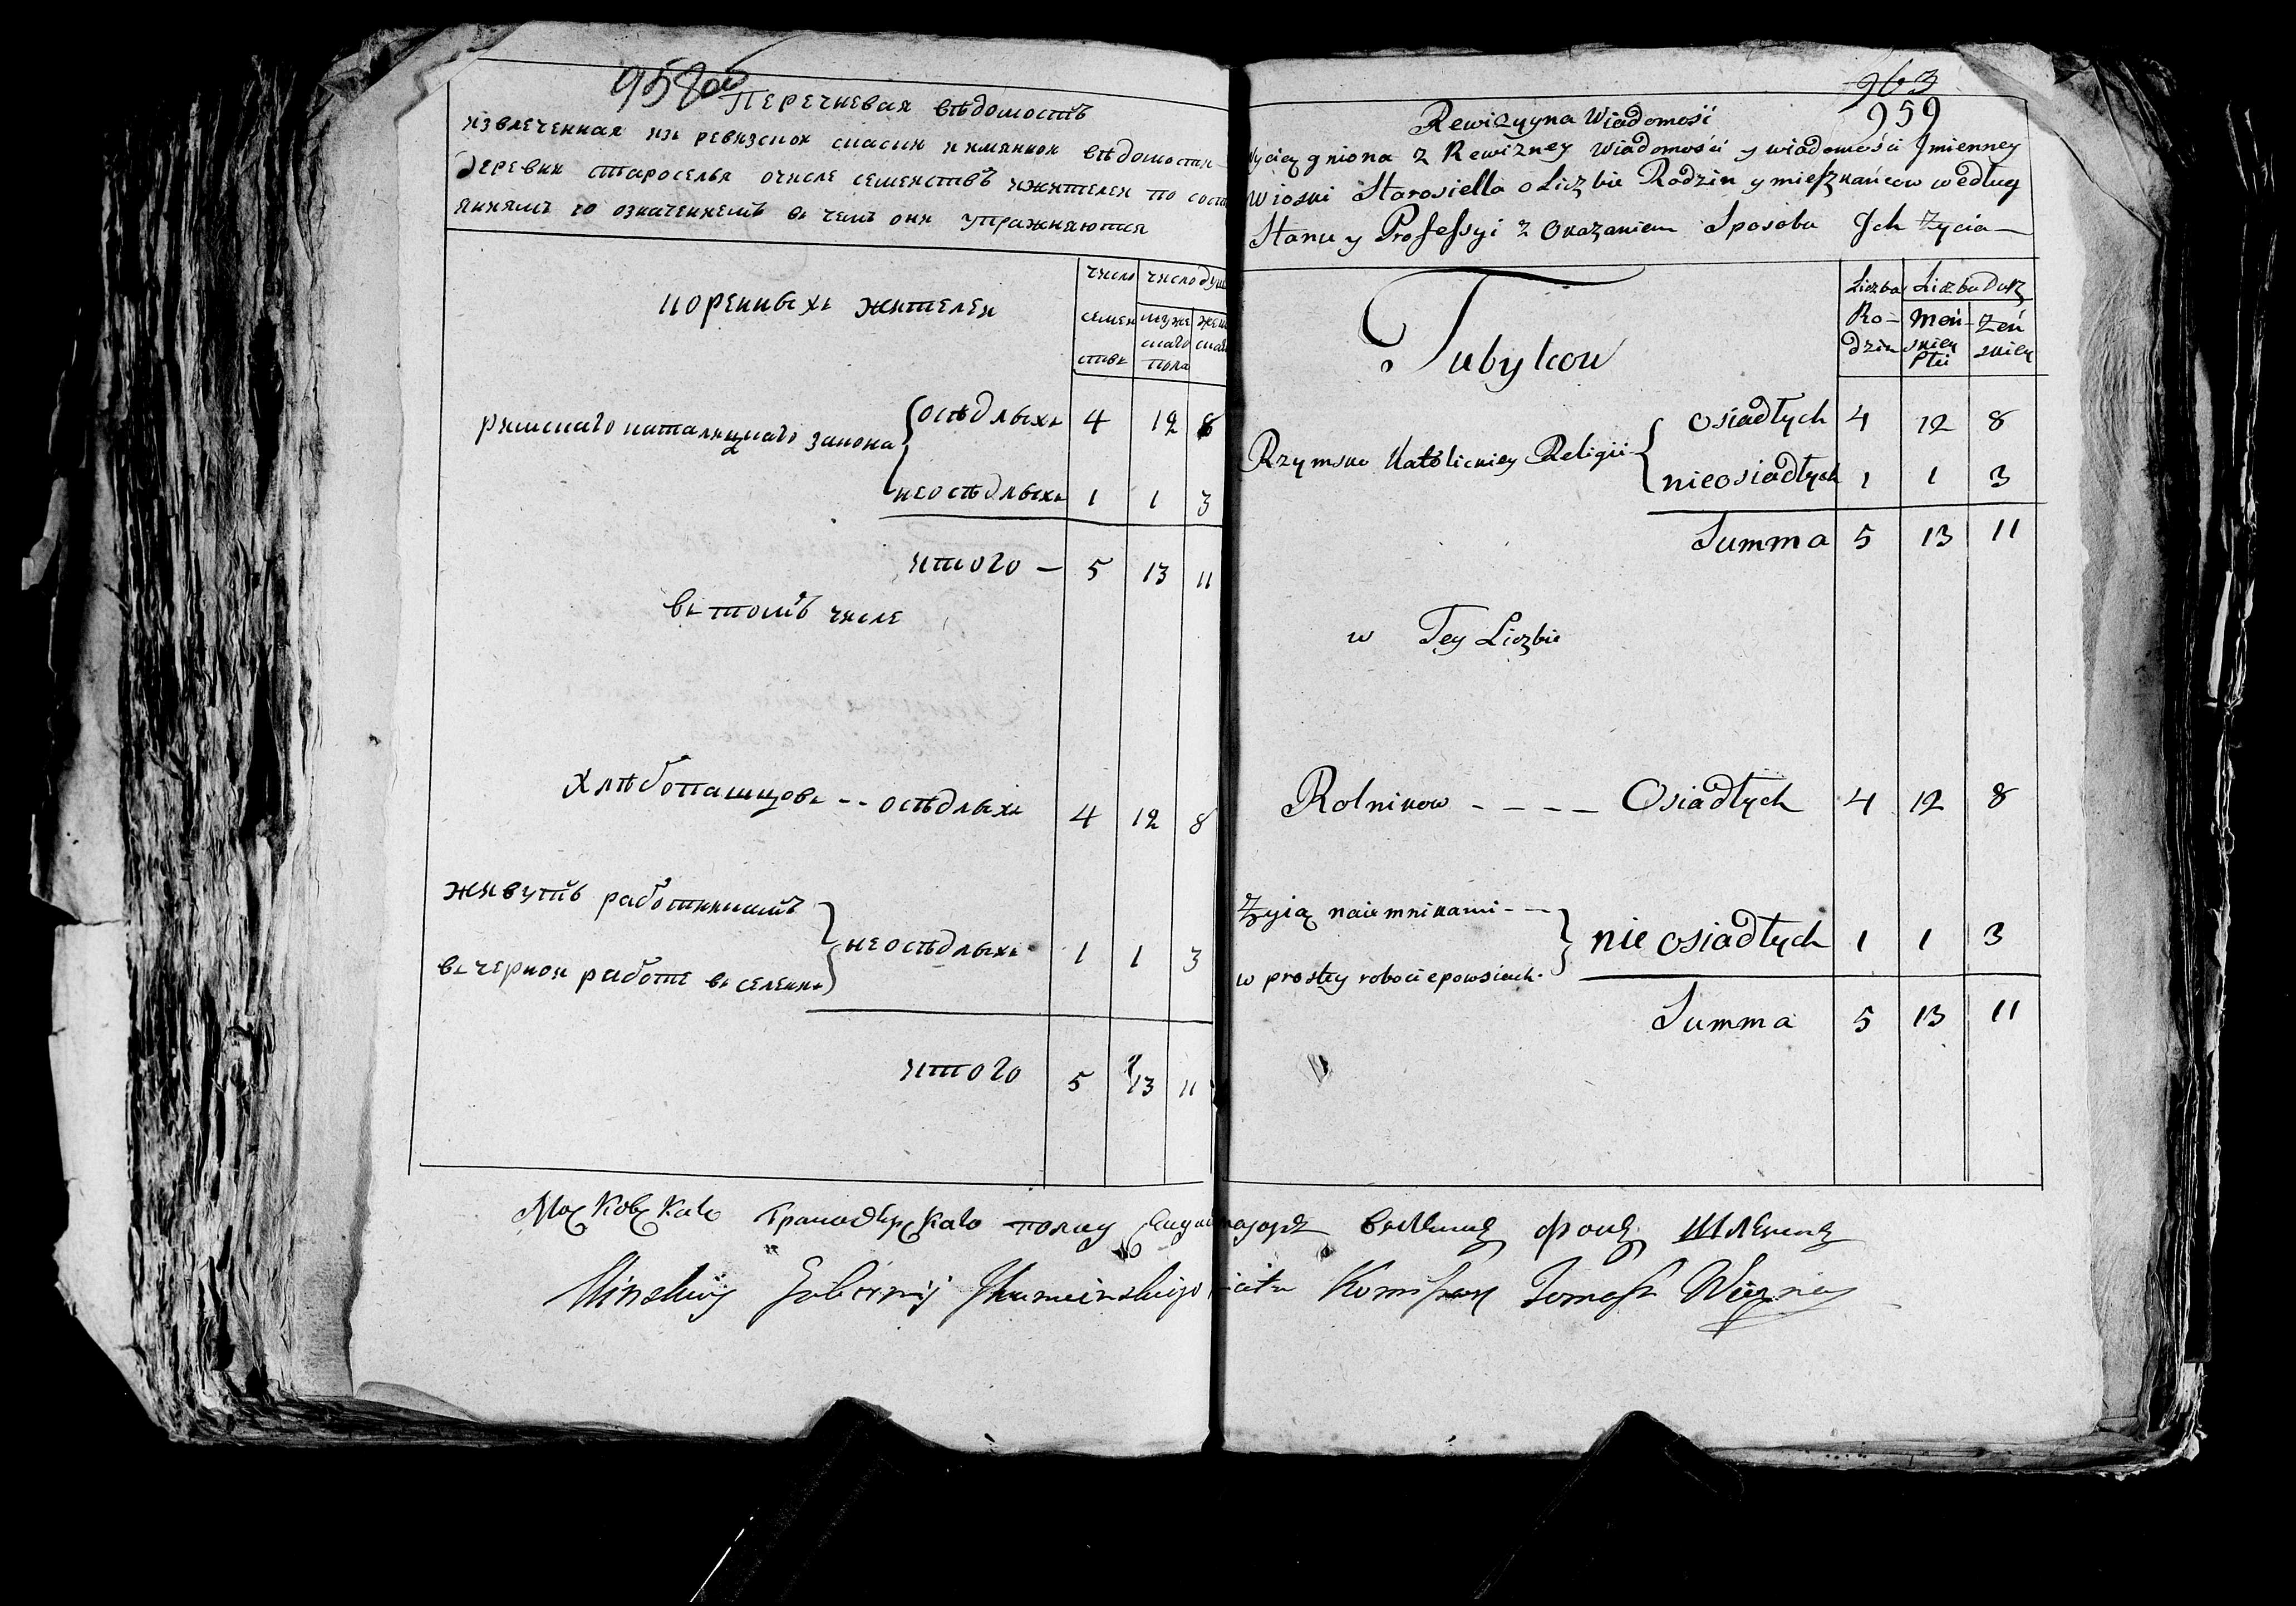 958об
Перечневая вѣдомость
извлеченная изъ ревизской сказки и имянной вѣдомости
деревни Староселья о числе семействъ и жителей по состо
яниямъ со означениемъ въ чемъ они упражняются
число число душ
коренныхъ жителей
семей муже жен
скаго скаго
ствъ пола
римскаго католицкаго закона { осѣдлыхъ 4 12 8
неосѣдлыхъ 1 1 3
итого — 5 13 11
въ томъ числе
Хлѣбопашцовъ -- осѣдлыхъ 4 12 8
живутъ работникамъ
въ черной работе въ селении } неосѣдлыхъ 1 1 3
итого 5 13 11
963
959
Rewizyyna Wiadomość
Wyciągniona z Rewizney Wiadomości y wiadomości Jmienney
Wioski Starosiella o Liczbie Rodzin y mieszkańcow według
Stanu y Professyi z Okazaniem Sposobu Jch Życia —
Liczba Liczba Dusz
Tubylcow
Ro- Męń- Żeń
dzin skiey skiey
Płci
Rzymsko Katolickiey Religii { osiadłych 4 12 8
nieosiadłych 1 1 3
Summa 5 13 11
w Tey Liczbie
Rolnikow - - - - Osiadłych 4 12 8
Żyią naiemnikami - -
w prostey robocie po wsiach } nie osiadłych 1 1 3
Summa 5 13 11
Московскаго Гранодерскаго полку Секундмаиоръ фонъ
Minskiey Gubernij Jhumeinskiego Komissarz Tomasz